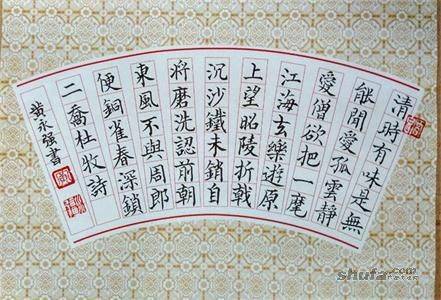 清時有味是無
能閒愛孤雲靜
愛僧欲把一麾
江海去樂遊原
上望昭陵折戟
沉沙鐵未銷自
將磨洗認前朝
東風不與周郎
便銅雀春深鎖
二喬杜牧詩
黄永强書